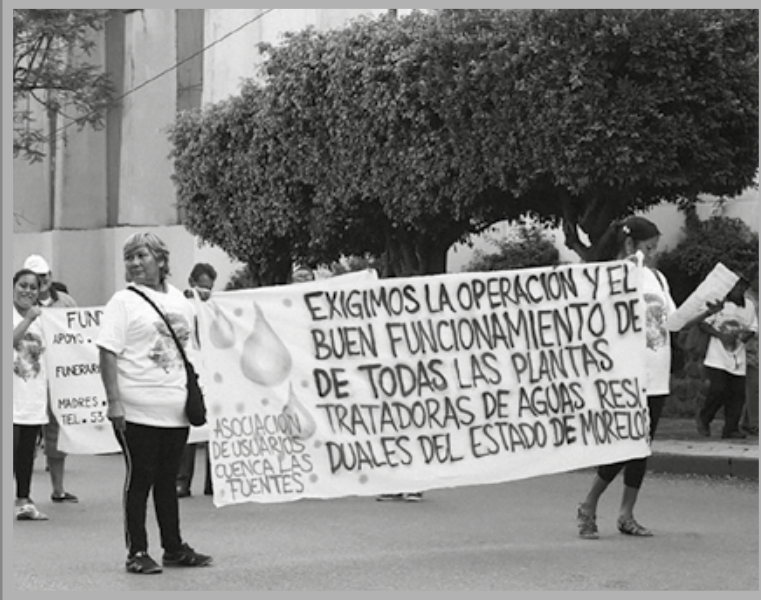 EXIGIMOS LA OPERACIÓN Y EL
BUEN FUNCIONAMIENTO DE
DE TODAS LAS PLANTAS
TRATADORAS DE AGUAS RESI-
DUALES DEL ESTADO DE MORELOS
ASOCIACIÓN
DE USUARIOS
CUENCA LAS
FUENTES
FUND
APOYO
FUNERAR
MADRES
TEL. 53